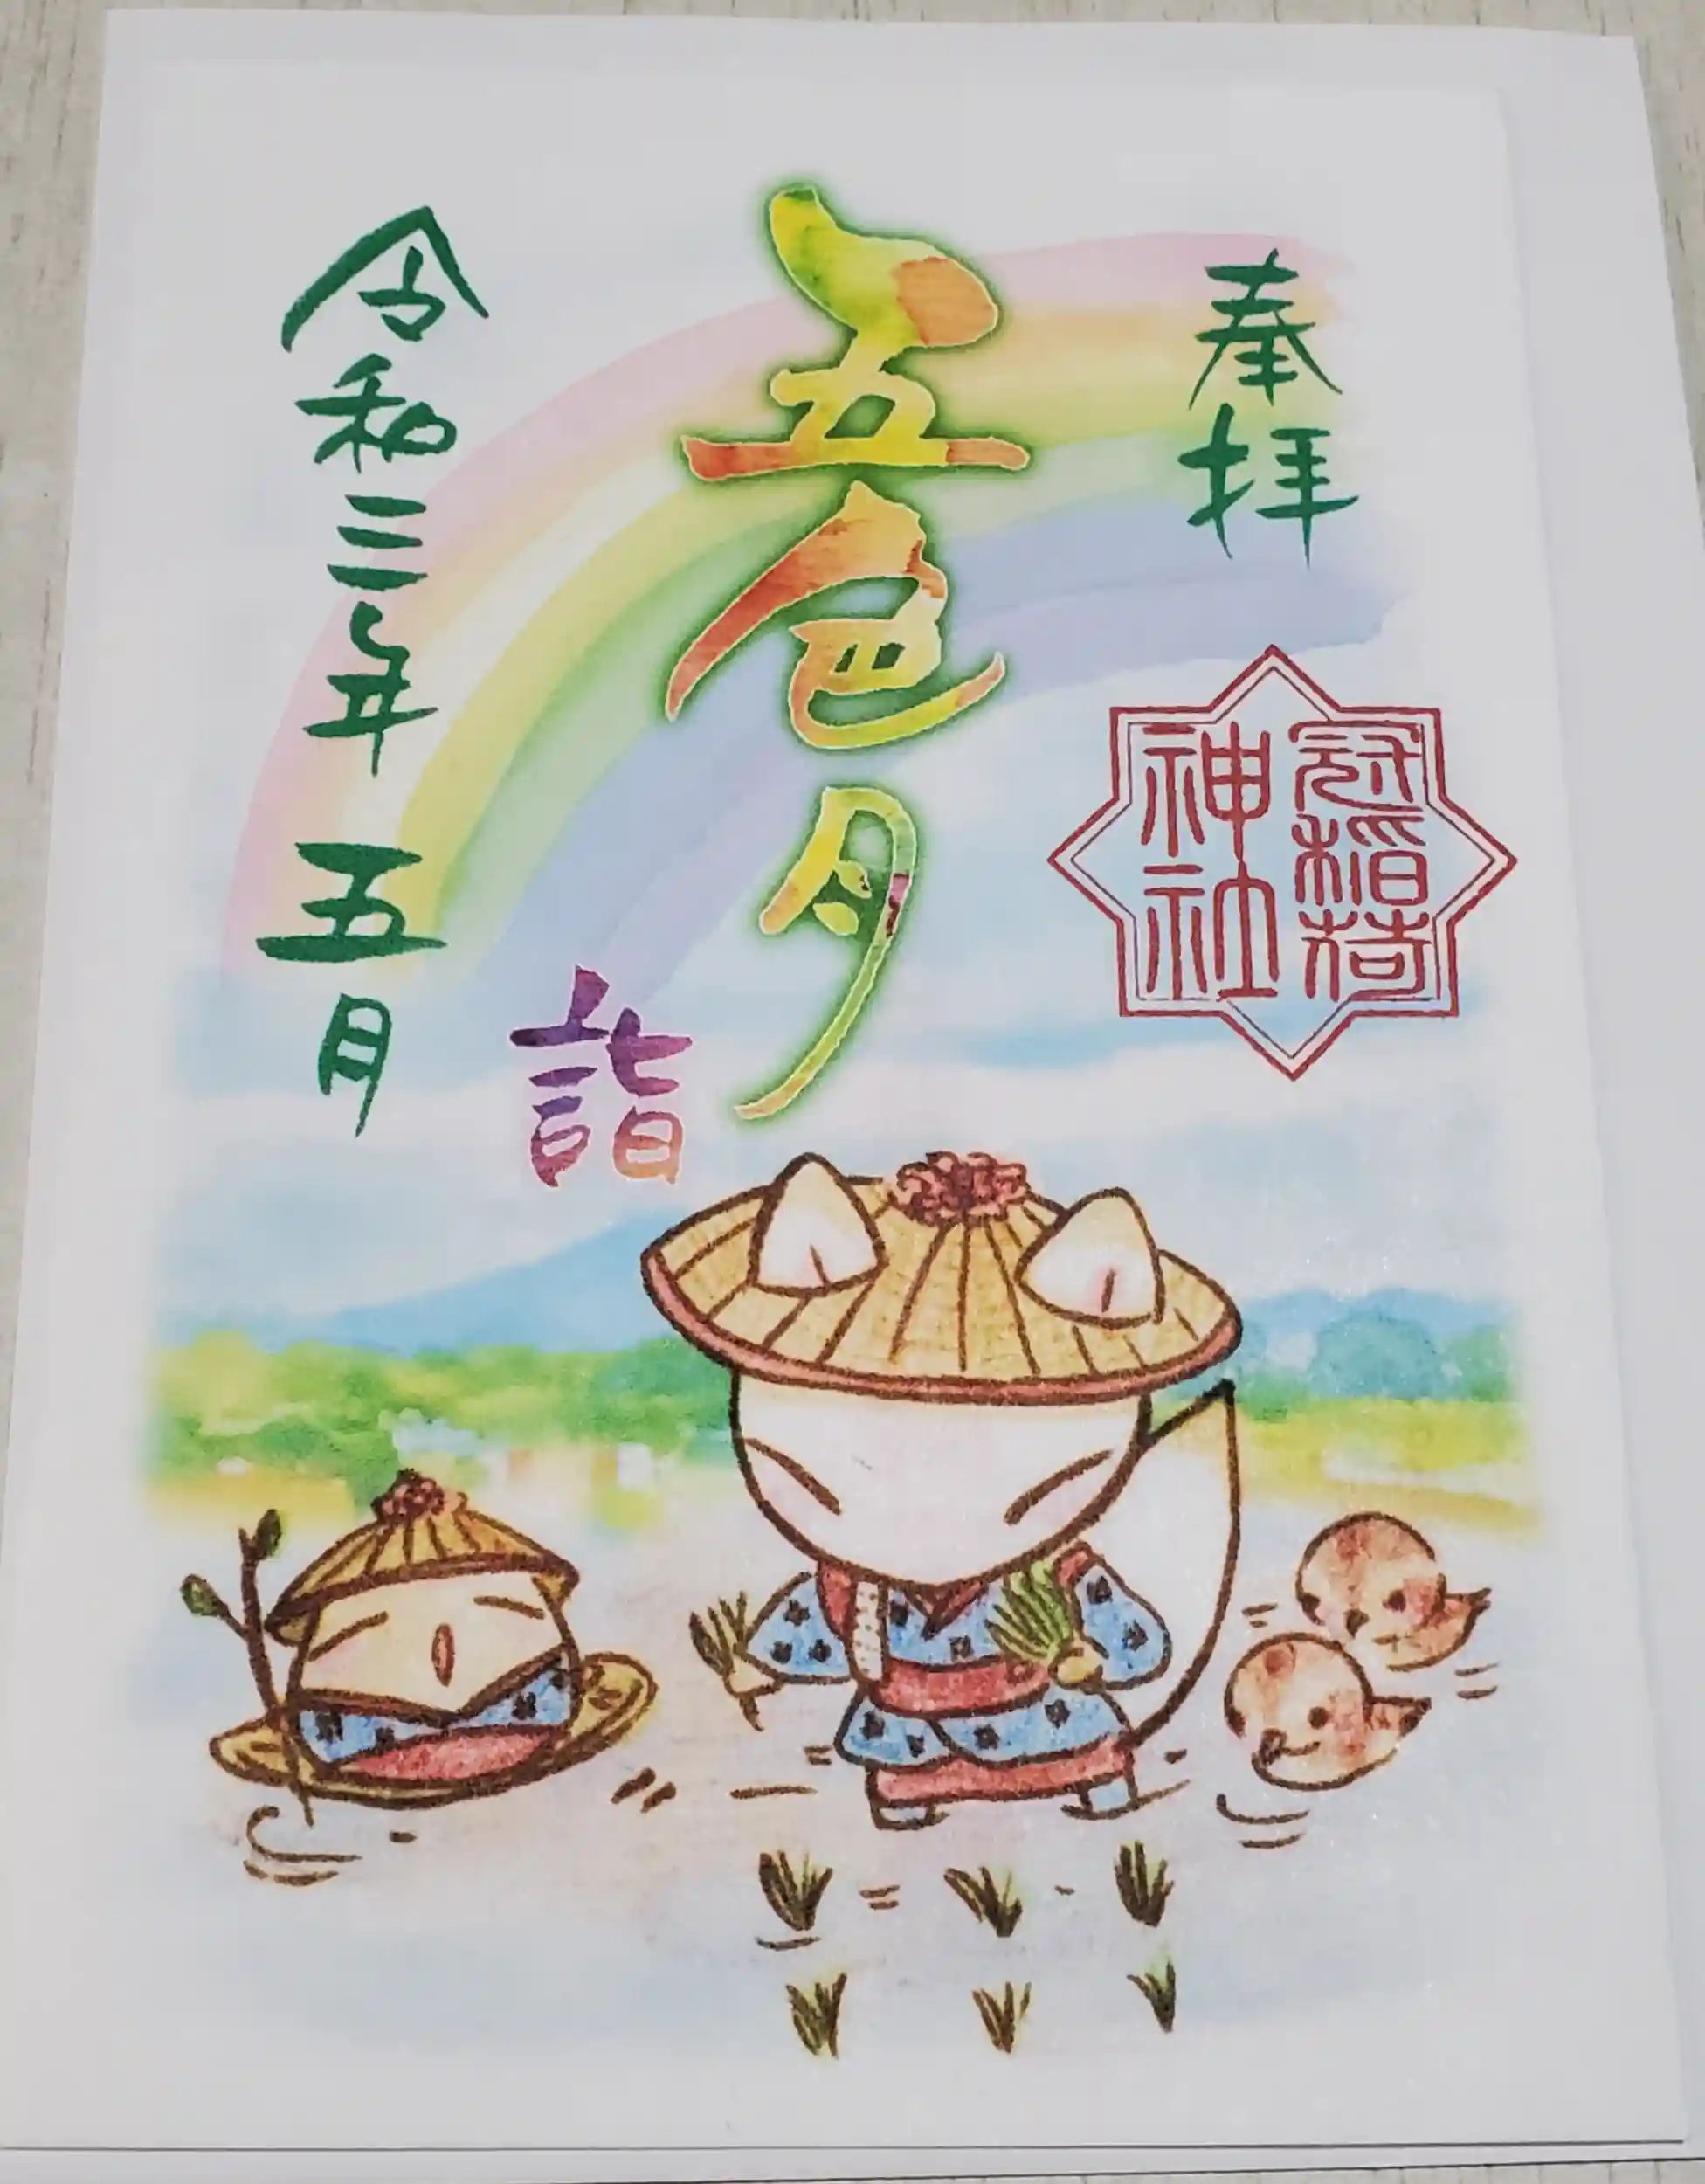 奉拝
冠稲荷
神社
五色夕
詣
令和三年 五月